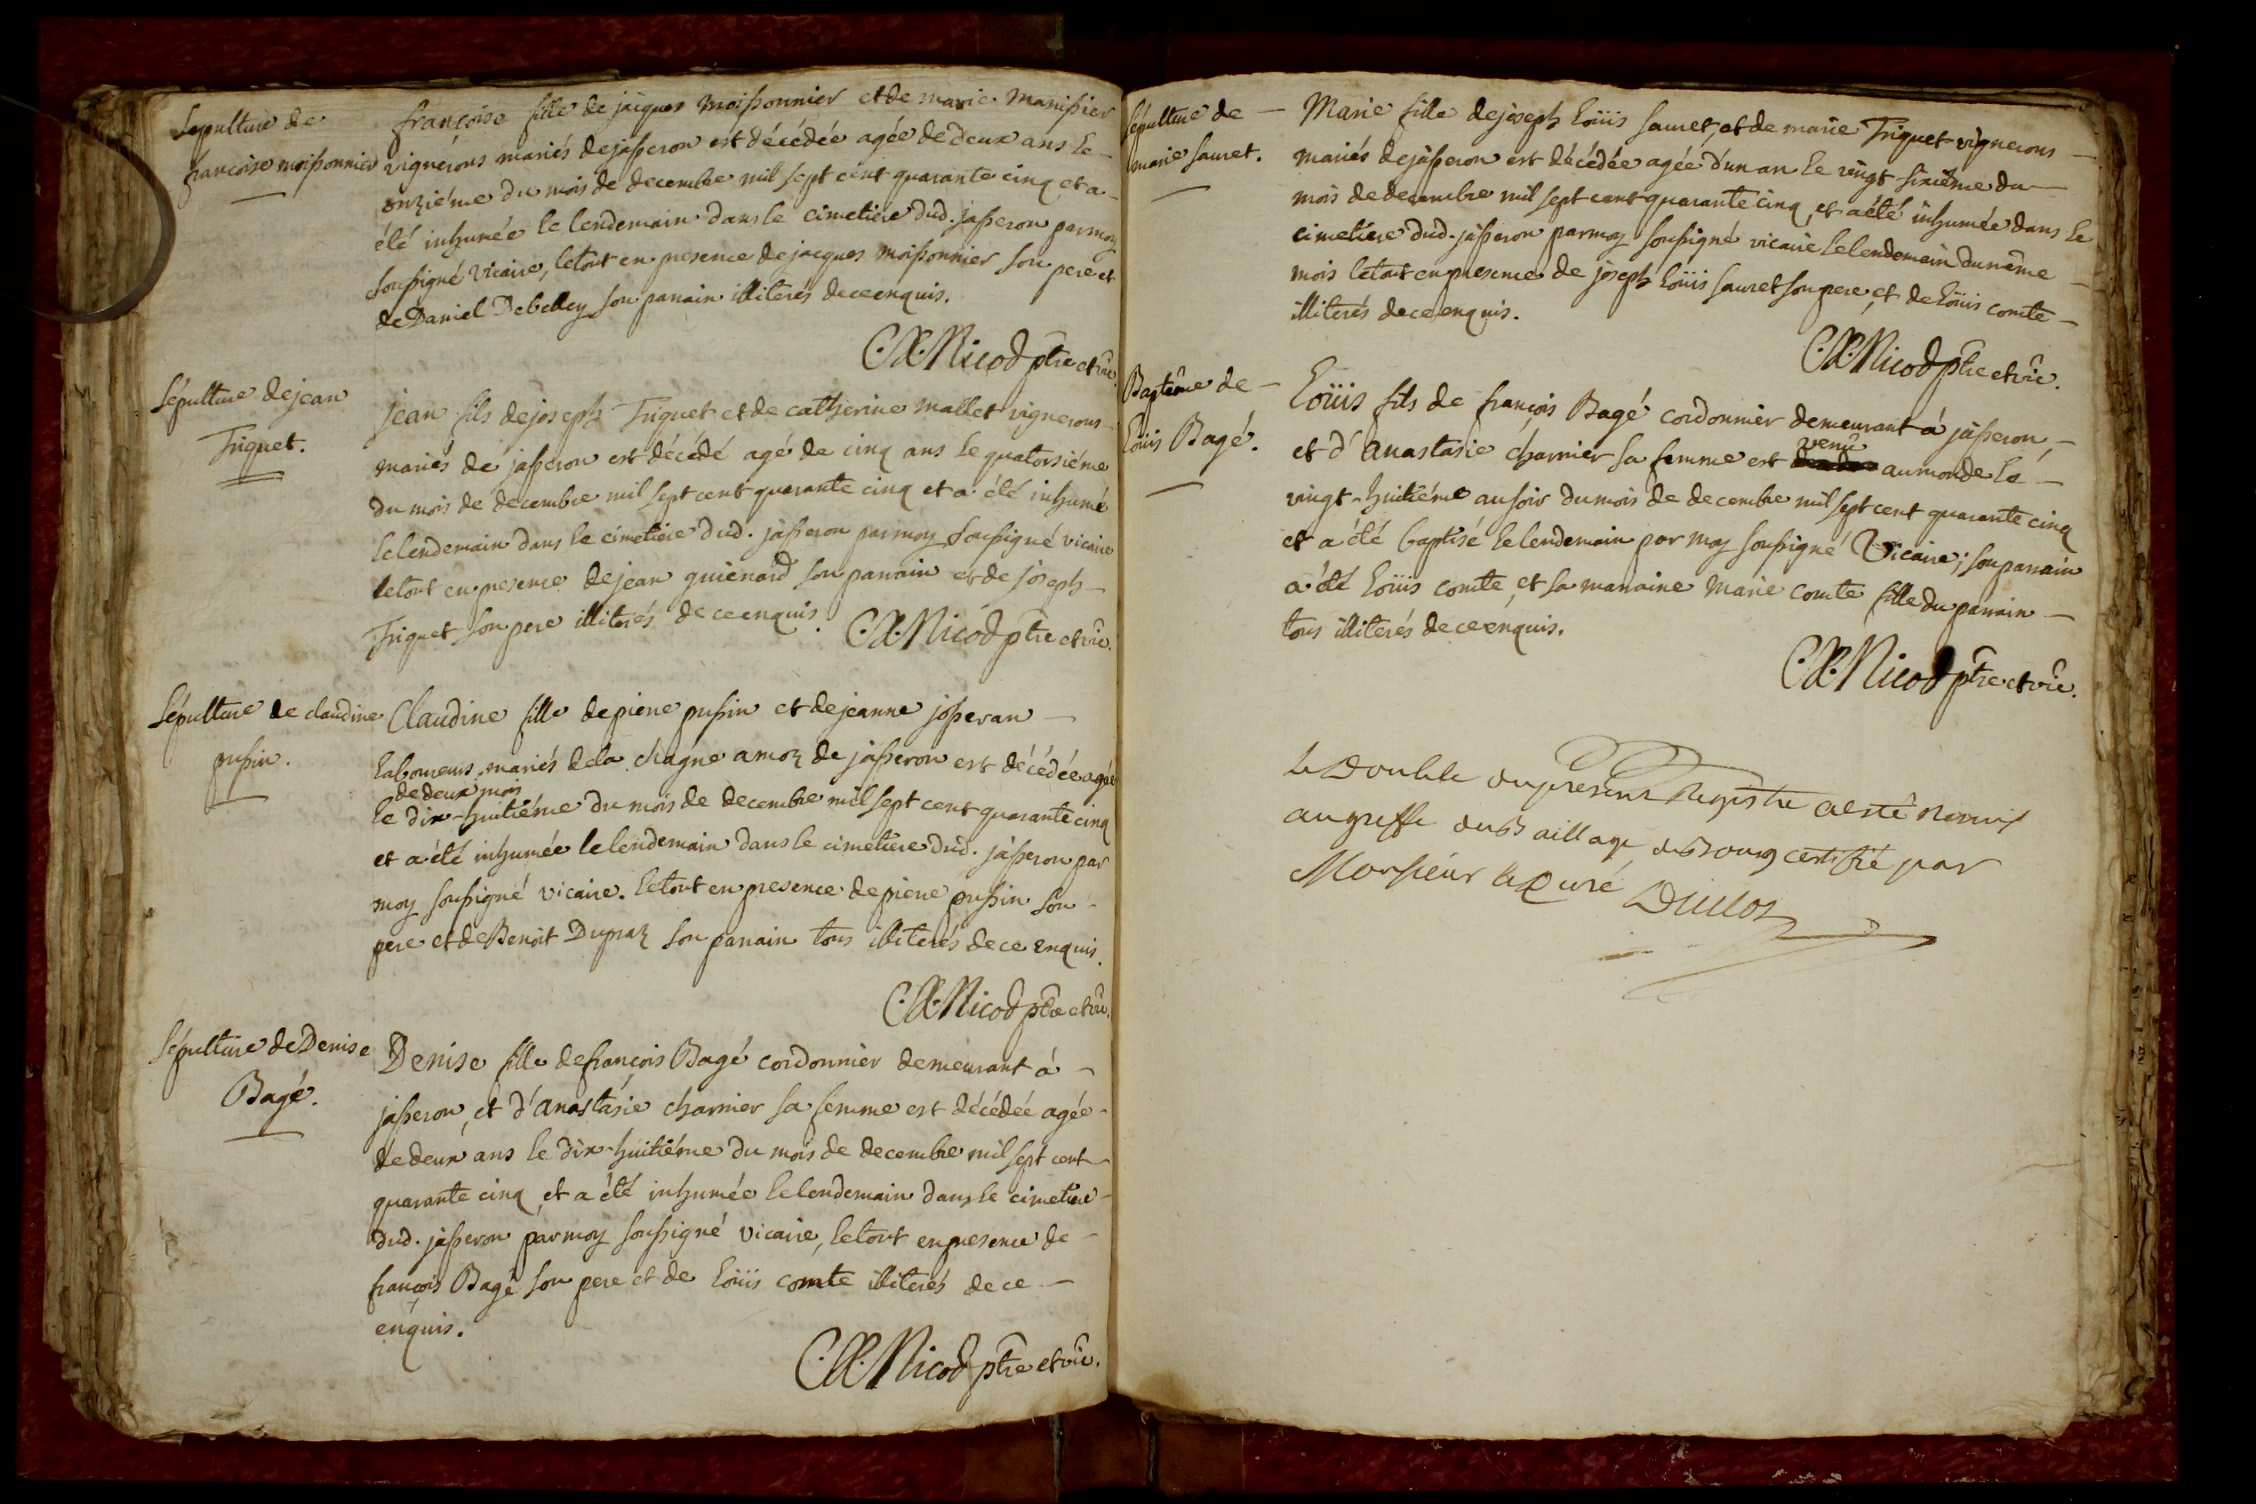 Sepulture de
francoise moissonnier
françoise fille de jacques moissonnier et de marie manissier
vignerons mariés de jasseron est décédée agée de deux ans le
onziéme du mois de decembre mil sept cent quarante cinq et a
été inhumée le lendemain dans le cimetiere dud. jasseron par moy
soussigné vicaire, le tout en presence de jacques moissonnier son pere et
de Daniel Debelley son parrain illiterés de ce enquis.
C.X. Nicod ptre et vic.
Sépulture de jean
Triquet.
jean fils de joseph Triquet et de catherine mallet vignerons
mariés de jasseron est décédé agé de cinq ans le quatorsiéme
du mois de decembre mil sept cent quarante cinq et a été inhumé
le lendemain dans le cimetiere dud. jasseron par moy soussigné vicaire
le tout en presence de jean guienard son parrain et de joseph
Triquet son pere illiterés de ce enquis.
C.X. Nicod ptre et vic.
Sépulture de claudine
pussin.
Claudine fille de pierre pussin et de jeanne josseran
laboureurs mariés de la chagne amoz de jasseron est décédée agée
de deux mois
le dix-huitiéme du mois de decembre mil sept cent quarante cinq
et a été inhumée le lendemain dans le cimetiere dud. jasseron par
moy soussigné vicaire. le tout en presence de pierre pussin son
pere et de Benoit Dupraz son parrain tous illiterés de ce enquis.
C.X. Nicod ptre et vic.
Sépulture de Denise
Bagé.
Denise fille de françois Bagé cordonnier demeurant à
jasseron, et d'anastasie charnier sa femme est décédée agée
de deux ans le dix-huitiéme du mois de decembre mil sept cent
quarante cinq et a été inhumée le lendemain dans le cimetiere
dud. jasseron par moy soussigné vicaire, le tout en presence de
françois Bagé son pere et de Loüis comte illiterés de ce
enquis.
C.X. Nicod ptre et vic.
Sépulture de
marie sauret.
Marie fille de joseph Loüis sauret, et de marie Triquet vignerons
mariés de jasseron est décédée agée d'un an le vingt-sixiéme du
mois de decembre mil sept cent quarante cinq, et a été inhumée dans le
cimetiere dud. jasseron par moy soussigné vicaire le lendemain du même
mois le tout en presence de joseph Loüis sauret son pere, et de Loüis comte
illiterés de ce enquis.
C.X. Nicod ptre et vic.
Baptême de
Loüis Bagé.
Loüis fils de françois Bagé cordonnier demeurant à jasseron,
et d'anastasie charnier sa femme est venu au monde le
vingt-huitiéme au soir du mois de decembre mil sept cent quarante cinq
et a été baptisé le lendemain par moy soussigné Vicaire; son parrain
a été Loüis comte, et sa marraine marie comte fille du parrain
tous illiterés de ce enquis.
C.X. Nicod ptre et vic.
Le Double du present Registre a esté Remis
au greffe du Baillage de Bourg certifié par
Monsieur le Curé